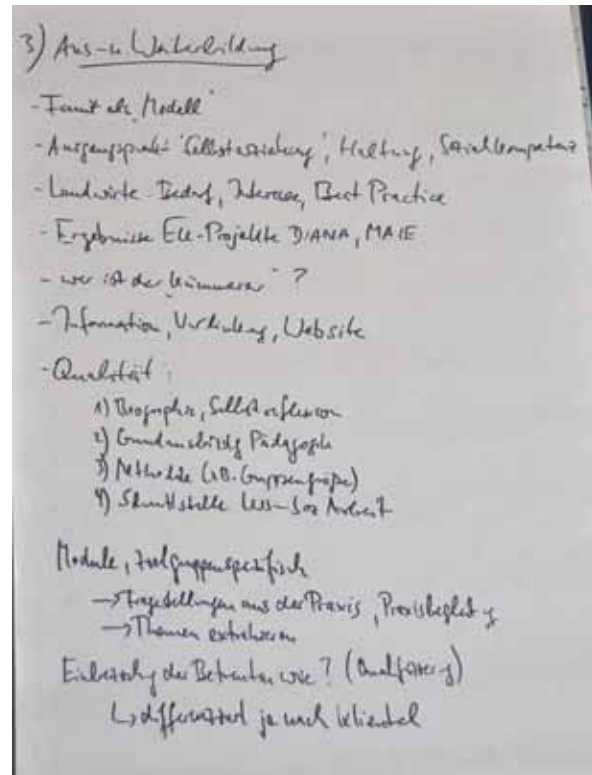 3) Aus- u Weiterbildung
- Ausgangspunkt "Selbsterziehung", Haltung, Sozialkompetenz
- Landwirte Bedarf, Interesse, Best Practice
- Ergebnisse EU-Projekte DIANA, MAIE
- wer ist der "Kümmerer" ?
- Information, Verlinkung, Website
- Qualität :
1) Biographie, Selbstreflexion
2) Grundausbildg Pädagogik
3) Methodik (z.B. Gruppengröße)
4) Schnittstelle Arbeit
Module, zielgruppenspezifisch
→ Fragestellungen aus der Praxis, Praxisbegleitg
→ Themen extrahieren
Einbeziehg der Betreuten wie? (Qualifizierg)
↳ differenziert je nach Klientel